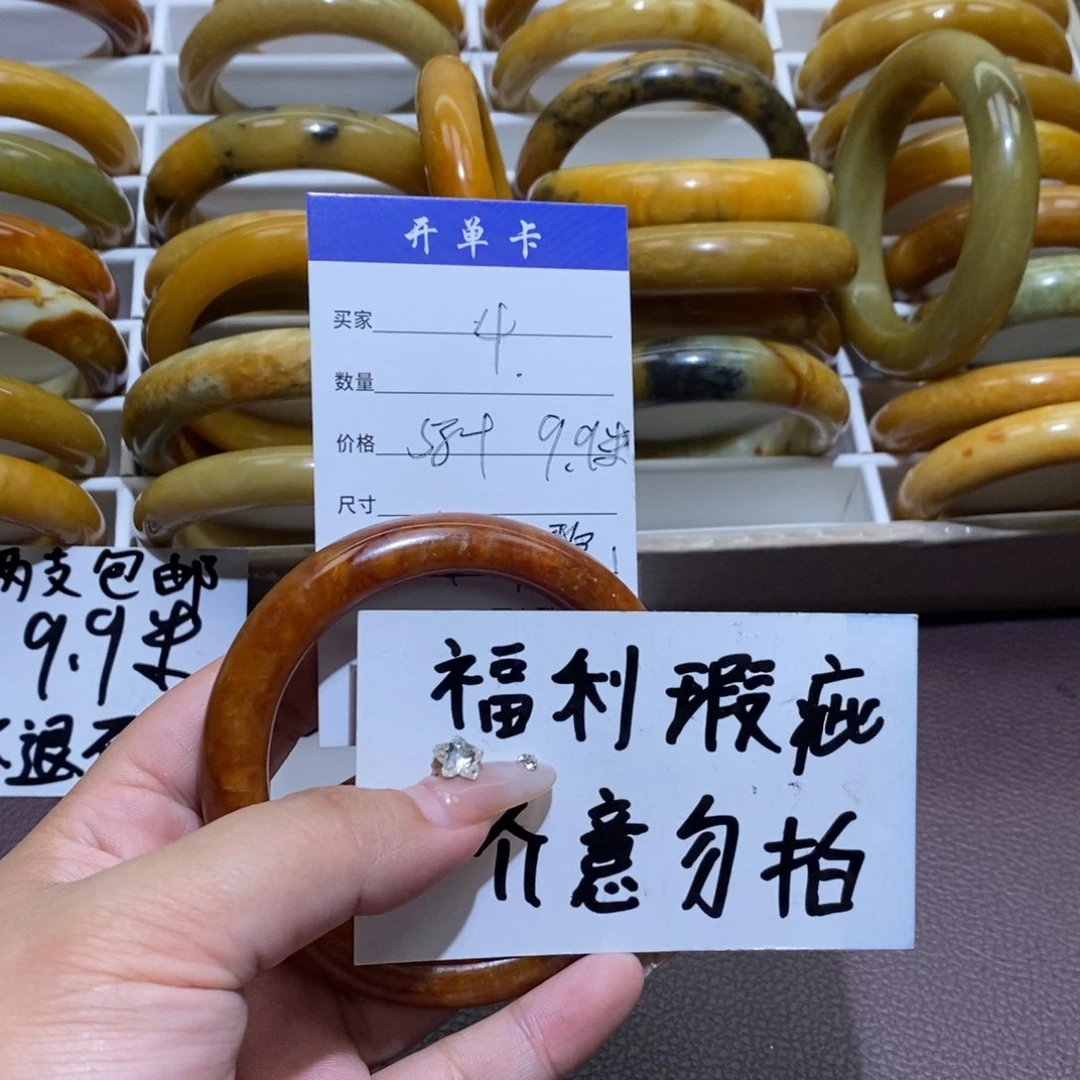 开单卡
买家 4.
数量
价格 584 9.9米
尺寸
两支包邮
9.9米
不退不
福利瑕疵
介意勿拍